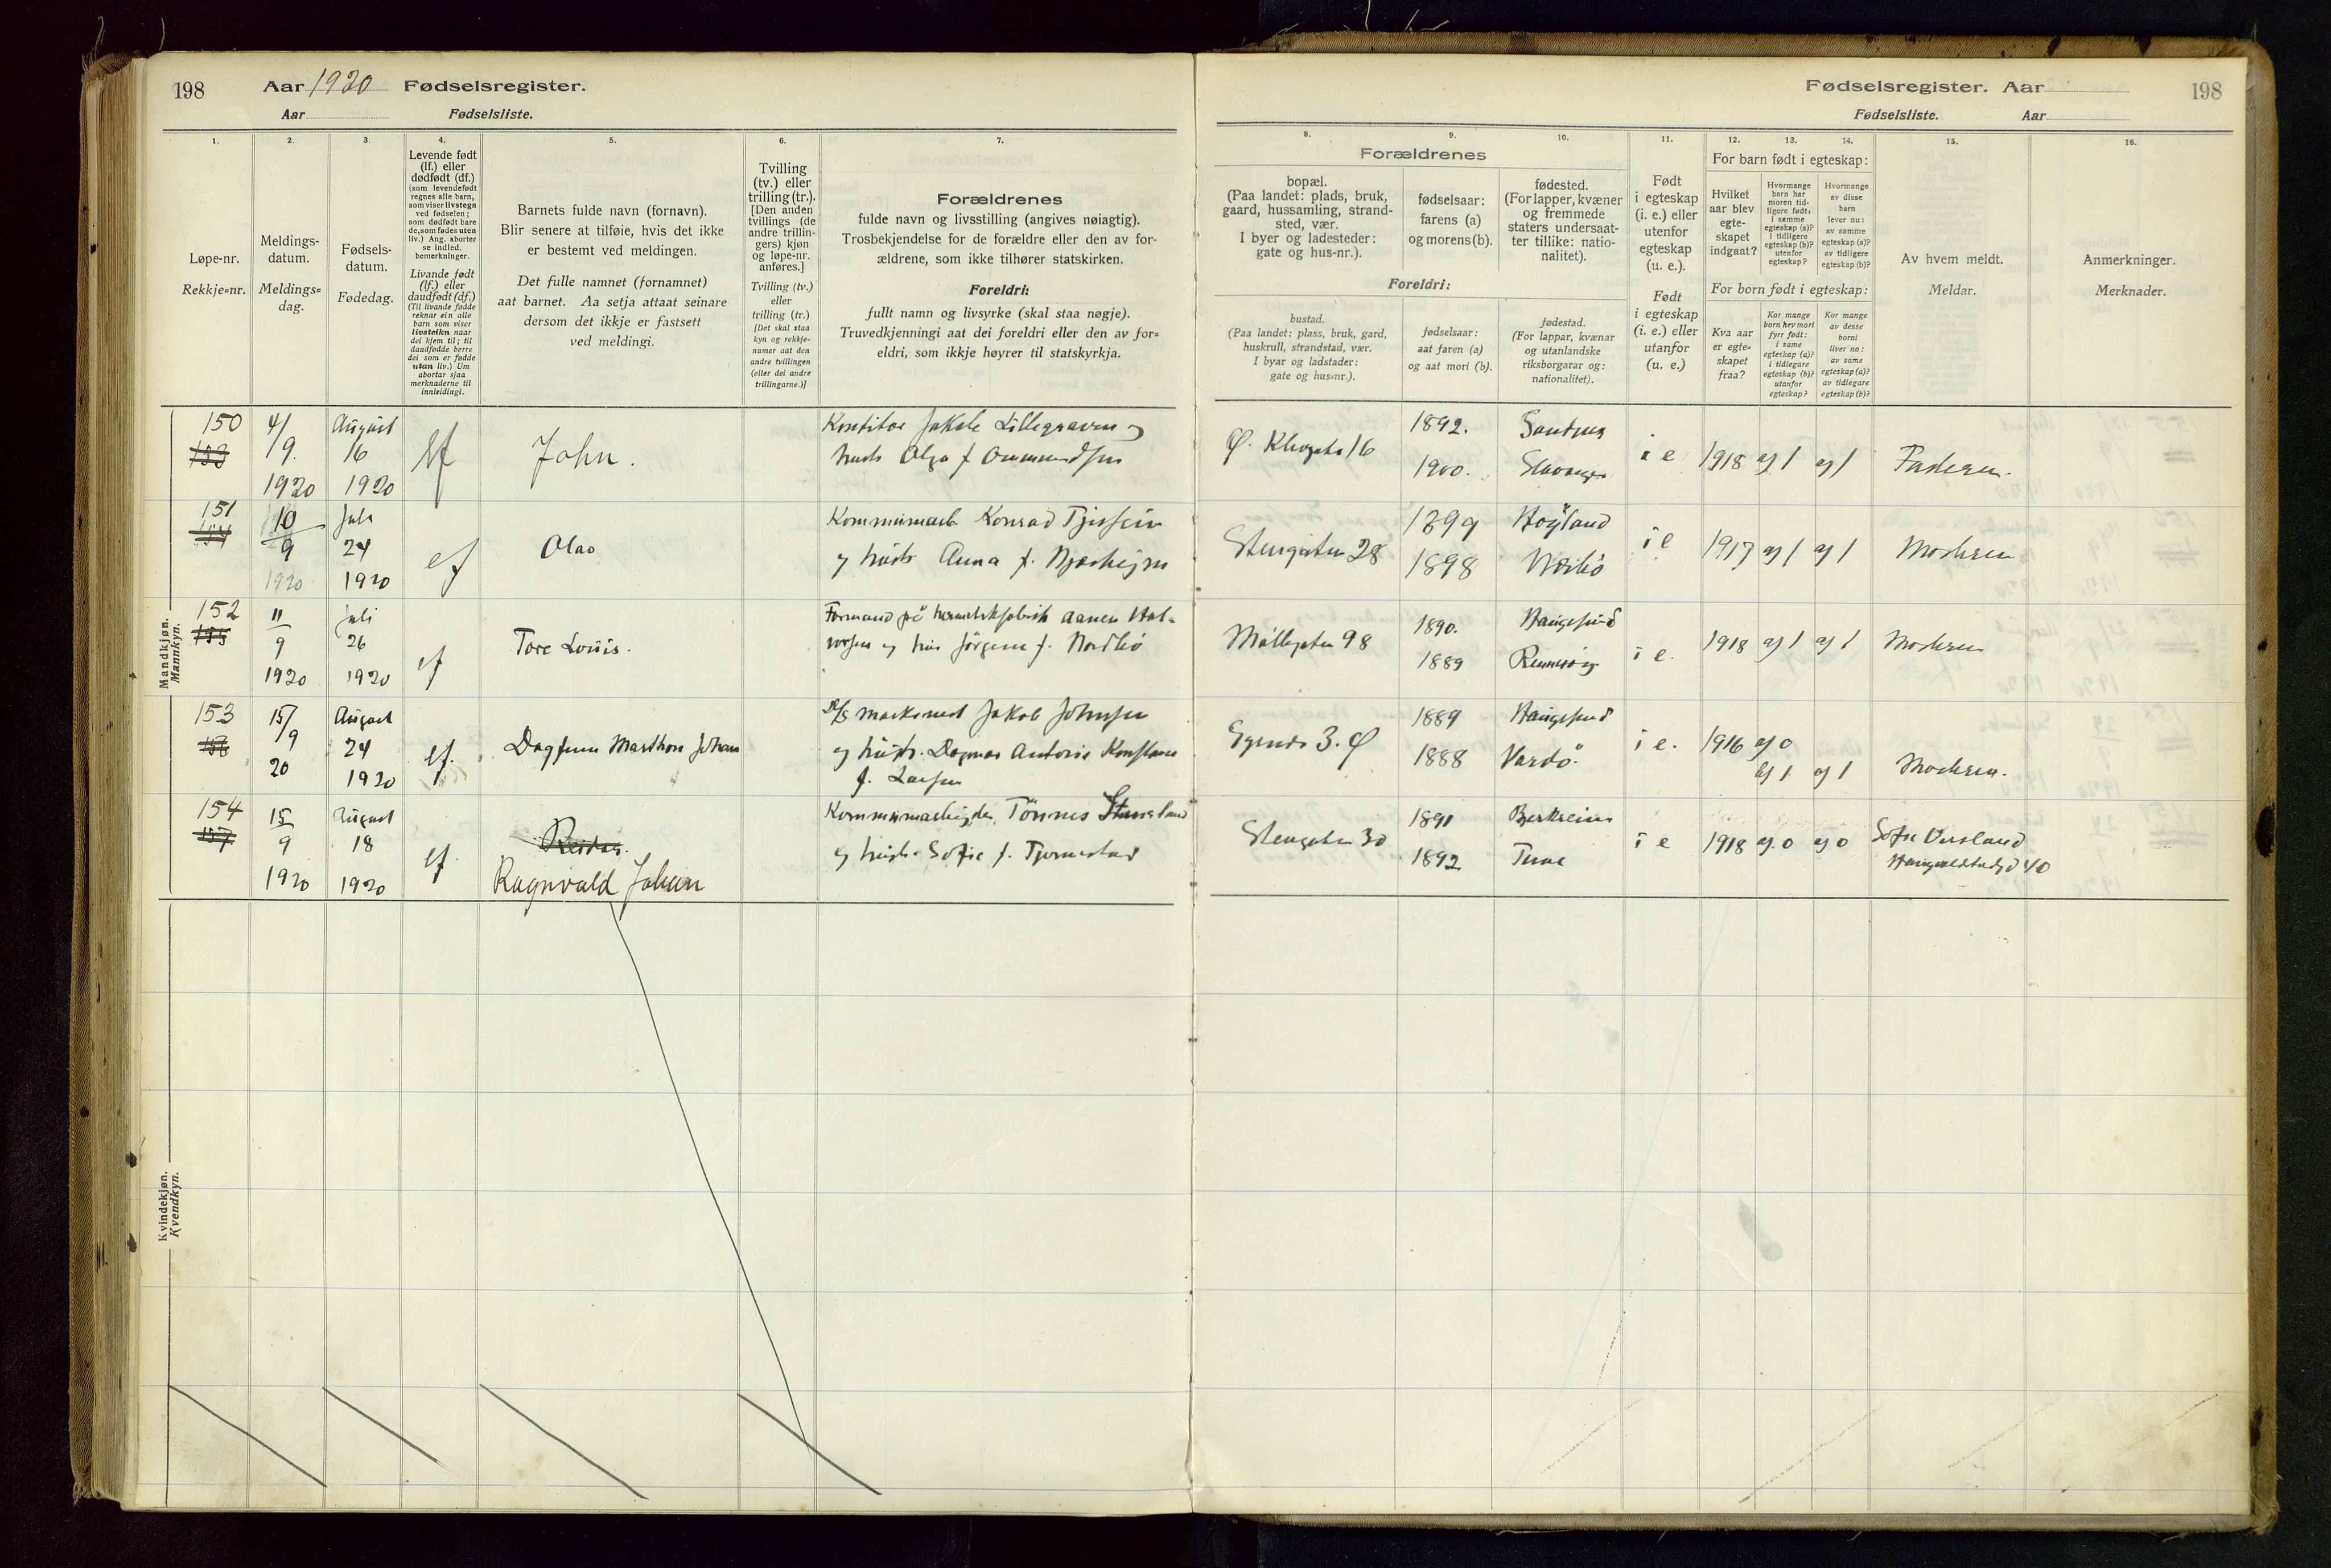 198 Aar 1920 Fødselsregister.
Aar Fødselsliste.
Fødselsregister. Aar 198
Fødselsliste. Aar
1. 2. 3. 4. 5. 6. 7.
Løpe-nr.
Rekkje=nr.
Meldings-
datum.
Meldings=
dag.
Fødsels-
datum.
Fødedag.
Levende født
(lf.) eller
dødfødt (df.)
(som levendefødt
regnes alle barn,
som viser livstegn
ved fødselen;
som dødfødt bare
de, som fødes uten
liv.) Ang. aborter
se indled.
bemerkninger.
Livande født
(lf.) eller
daudfødt (df.)
(Til livande fødde
reknar ein alle
barn som viser
livsteikn naar
dei kjem til; til
daudfødde berre
dei som er fødde
utan liv.) Um
abortar sjaa
merknaderne til
innleidingi.
Barnets fulde navn (fornavn).
Blir senere at tilføie, hvis det ikke
er bestemt ved meldingen.
Det fulle namnet (fornamnet)
aat barnet. Aa setja attaat seinare
dersom det ikkje er fastsett
ved meldingi.
Tvilling
(tv.) eller
trilling (tr.).
[Den anden
tvillings (de
andre trillin-
gers) kjøn
og løpe-nr.
anføres.]
Tvilling (tv.)
eller
trilling (tr.)
[Det skal staa
kyn og rekkje-
numer aat den
andre tvillingen
(eller dei andre
trillingarne.)]
Forældrenes
fulde navn og livsstilling (angives nøiagtig).
Trosbekjendelse for de forældre eller den av for-
ældrene, som ikke tilhører statskirken.
Foreldri:
fullt namn og livsyrke (skal staa nøgje).
Truvedkjenningi aat dei foreldri eller den av for=
eldri, som ikkje høyrer til statskyrkja.
8. 9. 10. 11. 12. 13. 14. 15. 16.
Forældrenes
bopæl.
(Paa landet: plads, bruk,
gaard, hussamling, strand-
sted, vær.
I byer og ladesteder:
gate og hus-nr.).
fødselsaar:
farens (a)
og morens (b).
fødested.
(For lapper, kvæner
og fremmede
staters undersaat-
ter tillike: natio-
nalitet).
Foreldri:
bustad.
(Paa landet: plass, bruk, gard,
huskrull, strandstad, vær.
I byar og ladstader:
gate og hus=nr.).
fødselsaar:
aat faren (a)
og aat mori (b).
fødestad.
(For lappar, kvænar
og utanlandske
riksborgarar og:
nationalitet).
Født
i egteskap
(i. e.) eller
utenfor
egteskap
(u. e.).
Født
i egteskap
(i. e.) eller
utanfor
(u. e.)
For barn født i egteskap:
Hvilket
aar blev
egte-
skapet
indgaat?
Hvormange
barn har
moren tid-
ligere født:
i samme
egteskap (a)?
i tidligere
egteskap (b)?
utenfor
egteskap?
Hvormange
av disse
barn
lever nu:
av samme
egteskap (a)?
av tidligere
egteskap (b)?
For born født i egteskap:
Kva aar
er egte-
skapet
fraa?
Kor mange
born hev mori
fyrr født:
i same
egteskap (a)?
i tidlegare
egteskap (b)?
utanfor
egteskap?
Kor mange
av desse
borni
liver no:
av same
egteskap (a)?
av tidlegare
egteskap (b)?
Av hvem meldt.
Meldar.
Anmerkninger.
Merknader.
Mandkjøn.
Mannkyn.
150 4/9. 1920 August 16 1920 lf John.
Jakob Lillegraven og
hustr Olga f. Ommundsen
16 1892. 1900. Stavanger i e 1918 a) 1 a) 1 Faderen.
151 10/9 1920 Juli 24 1920 lf Olav
Konrad
og hustr Anna f.
Stengaten 28 1899 1898 Høyland Nærbø i e 1917 a) 1 a) 1 Moderen
152 11/9 1920 Juli 26 1920 lf Tore Louis.
Formand på hermetikfabrik Aanen Hal-
vorsen og hus Jørgine f. Nordbø
Møllegaten 98 1890. 1889 Haugesund Rennesøy i e. 1918 a) 1 a) 1 Moderen
153 15/9 20 August 24 1920 lf. Dagfinn Marthon Johan
D/S Jakob Johnsen
og hustr. Dagmar Antonie Konstanse
f. Larsen
3. Ø 1889 1888 Haugesund Vardø. i e. 1916 a) 0
b) 1 a) 1 Moderen.
154 15/9 1920 August 18 1920 lf Reidar.
Ragnvald Johan
Kommunearbeider Tønnes
og hustr. Sofie f. Tjørnestad
Stengaten 30 1891 1892 Bjerkreim Time i e 1918 a) 0 a) 0 Sofie
40
Kvindekjøn.
Kvendkyn.